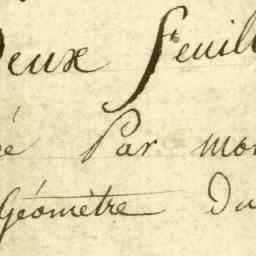 Deux Feuill
é Par mon
Géomètre Du